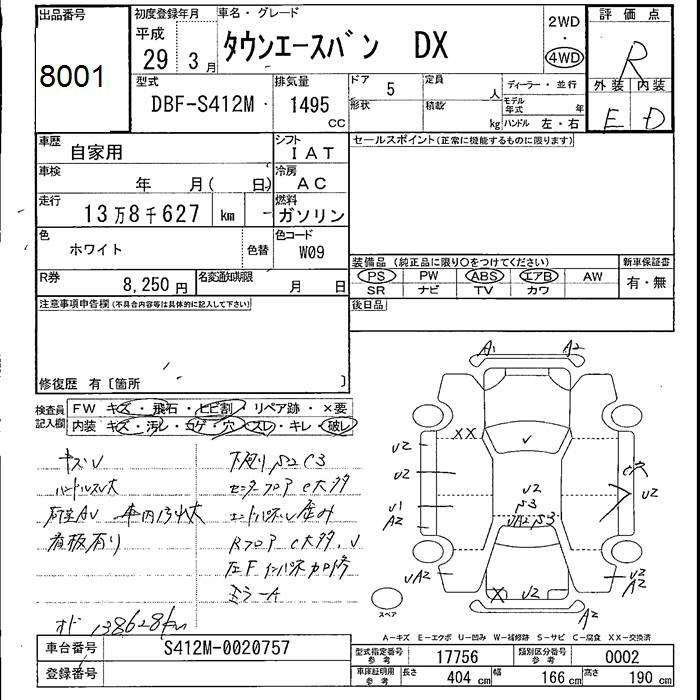 出品番号
8001
初度登録年月
平成
29 3月
車名・グレード
タウンエースバン DX
2WD
・
4WD
評価点
R
外装 内装
E D
型式
DBF-S412M
排気量
1495
CC
ドア
5
形状
定員
人
積載
kg
ディーラー・並行
モデル年式
年
ハンドル 左・右
車歴
自家用
シフト
IAT
車検
年 月( 日)
冷房
AC
走行
13万8千627 km
燃料
ガソリン
色
ホワイト
色替
色コード
W09
R券
8,250円
名変通知期限
月 日
セールスポイント(正常に機能するものに限ります)
装備品 (純正品に限り○をつけてください)
PS PW ABS エアB AW
SR ナビ TV カワ
新車保証書
有・無
後日品
注意事項申告欄(不具合内容等は具体的に記入して下さい)
修復歴 有〔箇所 〕
検査員記入欄
FW キズ・飛石・ヒビ割・リペア跡・×要
内装 キズ・汚レ・コゲ・穴・スレ・キレ・破レ
キズU
ハンドルスレ大
看板有り
下廻り S2 C3
センターフロア C大多
Rフロア C大多、U
ミラーA
オド 138628km
A1 A2
XX
U2
U2
U1
A2
UA2
U
U2
S3
UA2 S3
X U2
U2
U2
A2
A2
スペア
A-キズ E-エクボ U-凹み W-補修跡 S-サビ C-腐食 XX-交換済
車台番号
S412M-0020757
登録番号
型式指定番号
参考
17756
類別区分番号
参考
0002
車庫証明用
参考
長さ
404 cm
幅
166 cm
高さ
190 cm